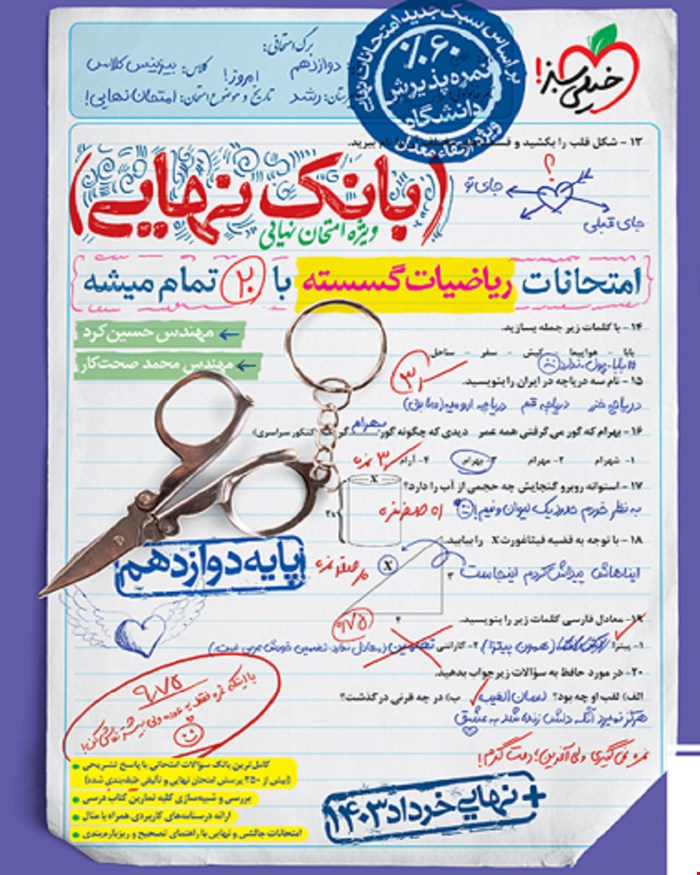 خیلی سبز!
برگ امتحانی:
دوازدهم
کلاس: بیزینس کلاس
امروز!
تاریخ و موضوع امتحان: امتحان نهایی!
رشد
بر اساس سبک جدید امتحانات نهایی
٪۶۰
نمره پذیرش
دانشگاه
ویژه ارتقاء معدل
۱۳ - شکل قلب را بکشید و
ببرید.
؟
جای تو
جای قبلی
(بانک نهایی)
ویژه امتحان نهایی
امتحانات ریاضیات گسسته با ۲۰ تمام میشه
مهندس حسین کرد
مهندس محمد صحت‌کار
۱۴ - با کلمات زیر جمله بسازید.
بابا - هواپیما - کیش - سفر - ساحل
بابا پول ندارد
۱۵ - نام سه دریاچه در ایران را بنویسید.
دریاچه خزر دریاچه قم دریاچه ارومیه (سابق)
۱۶ - بهرام که گور می‌گرفتی همه عمر دیدی که چگونه گور بهرام گرفت (کنکور سراسری)
۱- شهرام ۲- مهرام ۳- بهرام ۴- آرام
۱۷ - استوانه روبرو گنجایش چه حجمی از آب را دارد؟
به نظر خودم حدود یک لیوان و نیم!
X
۱۸ - با توجه به قضیه فیثاغورث X را بیابید.
ایناهاش پیداش کردم اینجاست
X
۳
۴
پایه دوازدهم
۱۹- معادل فارسی کلمات زیر را بنویسید.
۱- پیتزا (همون پیتزا) ۲- گارانتی تضمین
۲۰ - در مورد حافظ به سؤالات زیر جواب بدهید.
الف) لقب او چه بود؟ لسان الغیب ب) در چه قرنی درگذشت؟
هرگز نمیرد آنکه دلش زنده شد به عشق
۹/۷۵
نمره نمی‌گیری ولی آفرین! دمت گرم!
کامل‌ترین بانک سؤالات امتحانی با پاسخ تشریحی
(بیش از ۲۵۰ پرسش امتحان نهایی و تألیفی طبقه‌بندی شده)
بررسی و شبیه‌سازی کلیه تمارین کتاب درسی
ارائه درسنامه‌های کاربردی همراه با مثال
امتحانات چالشی و نهایی با راهنمای تصحیح و ریزبارم‌بندی
+ نهایی خرداد ۱۴۰۳